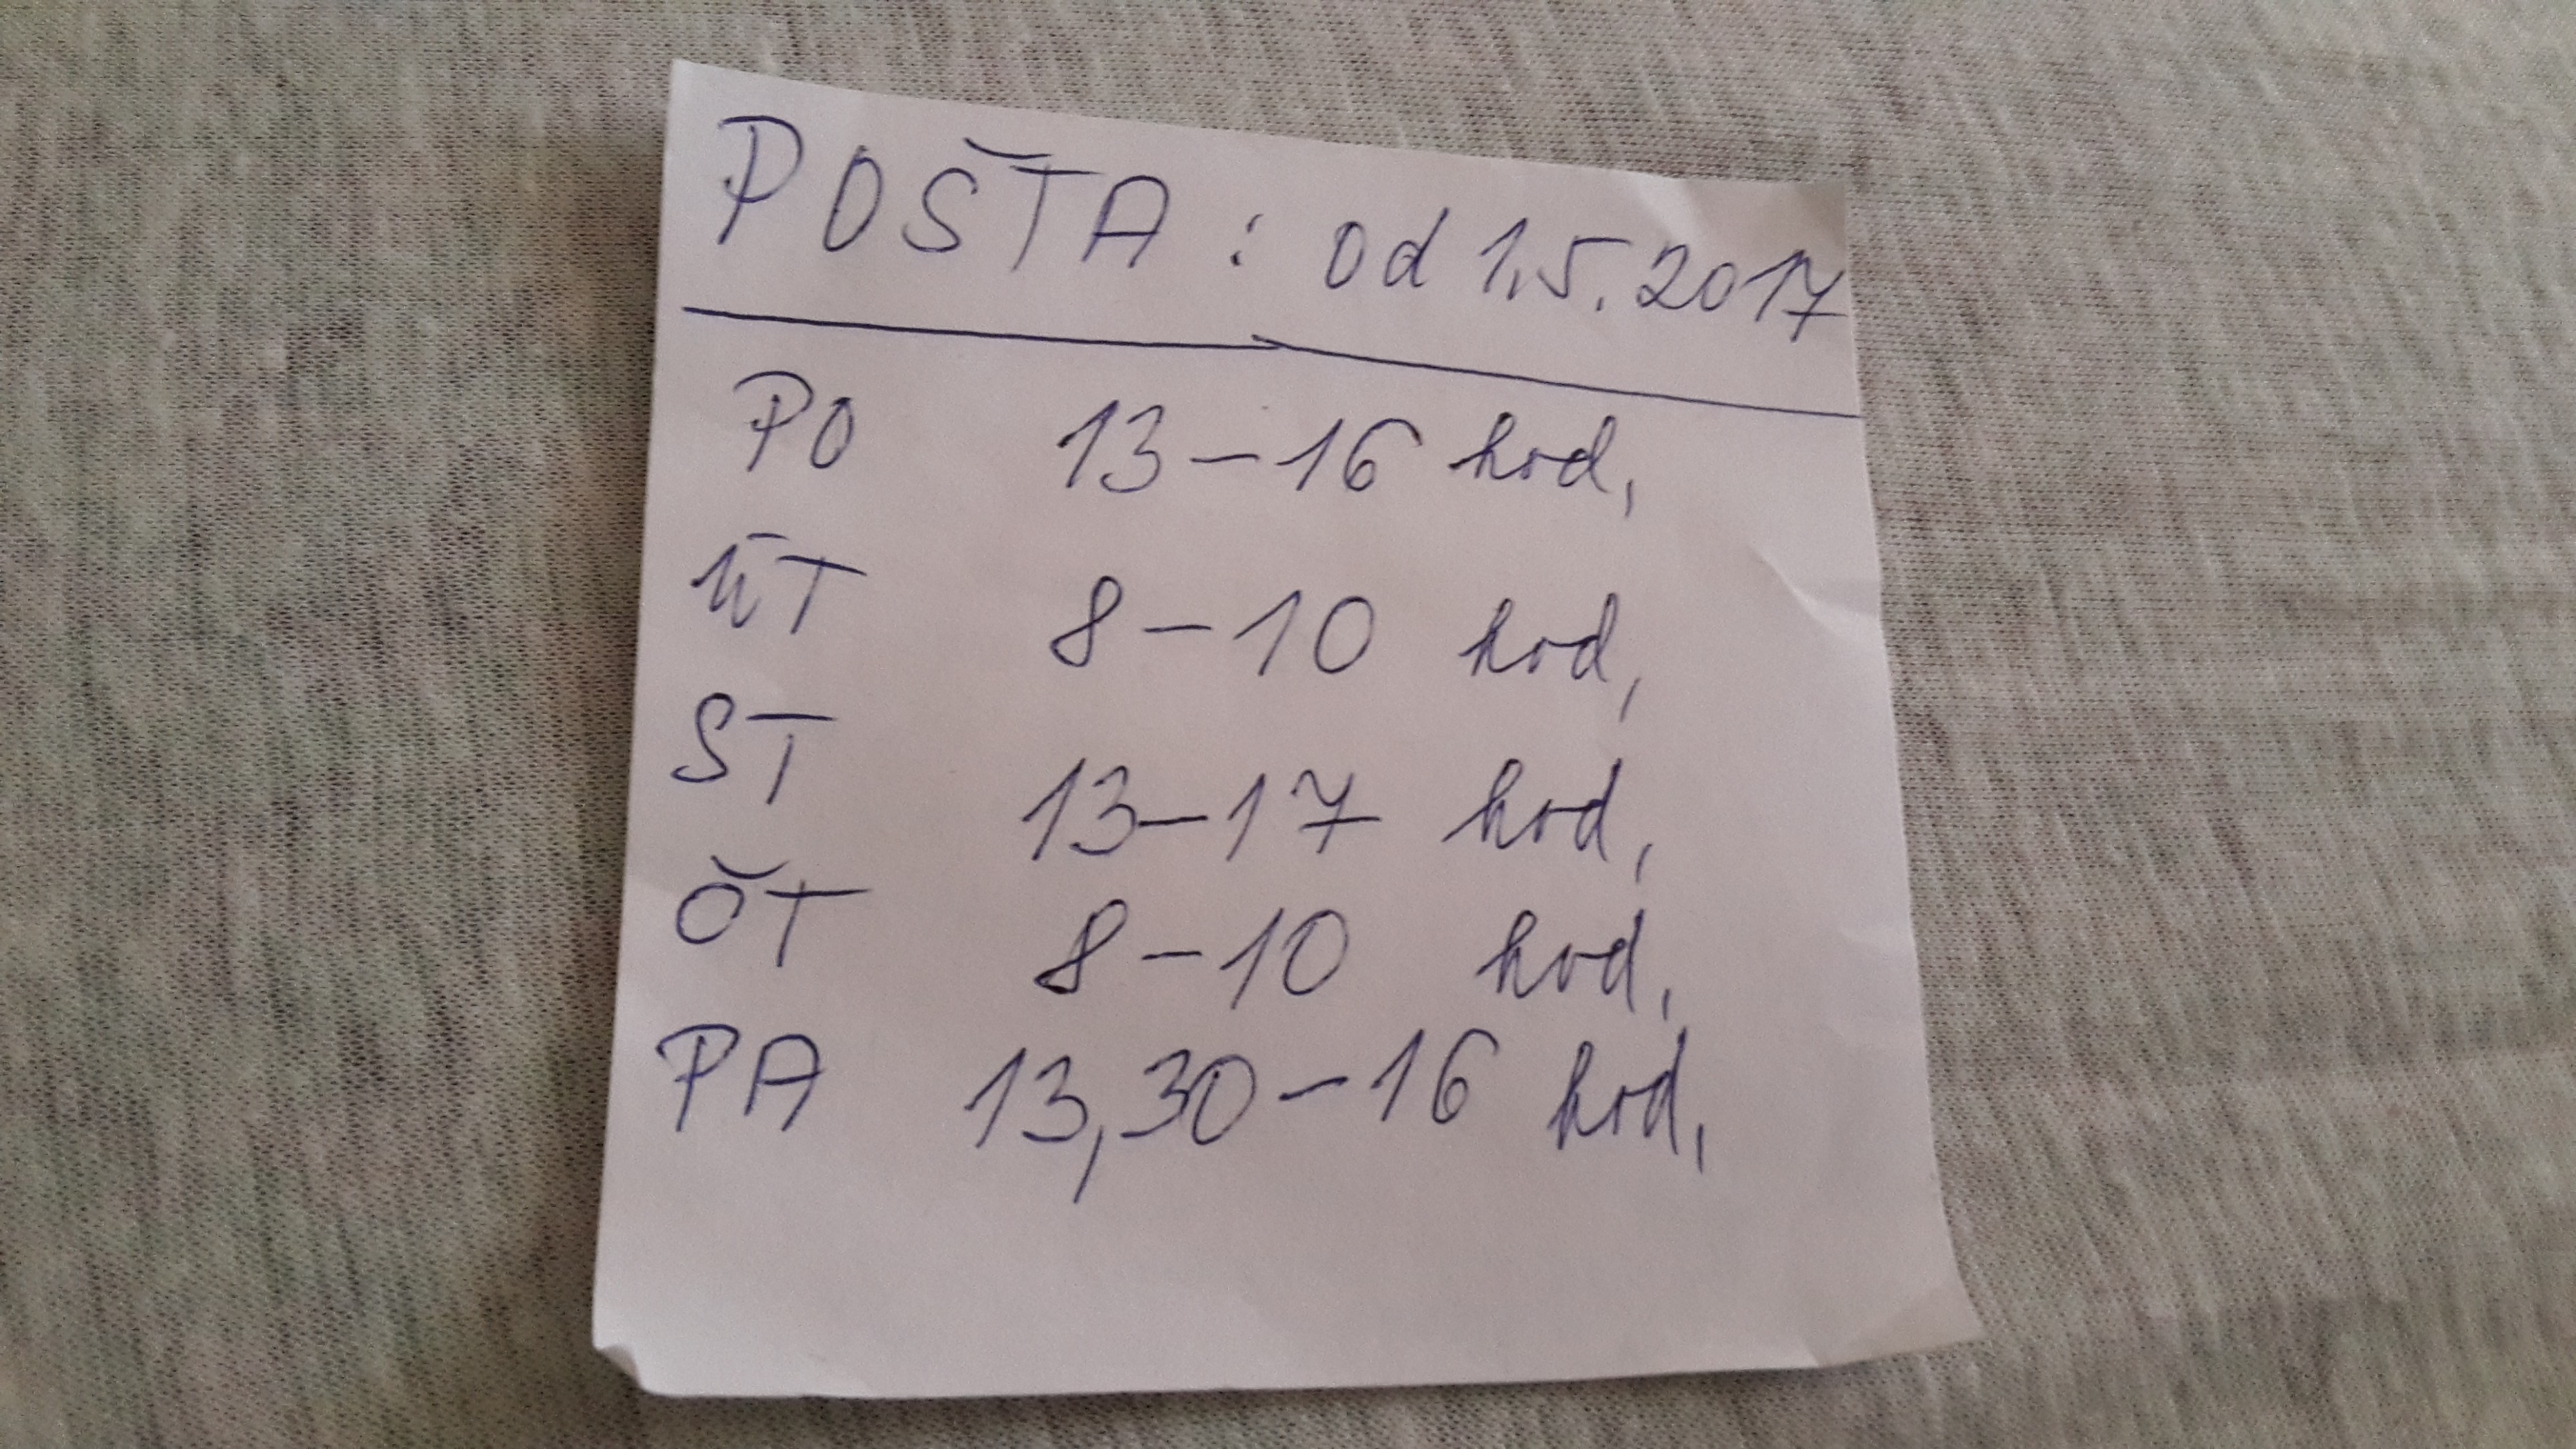 POŠTA: od 1.5.2017
PO 13-16 hod.
ÚT 8-10 hod.
ST 13-17 hod.
ČT 8-10 hod.
PA 13,30-16 hod.